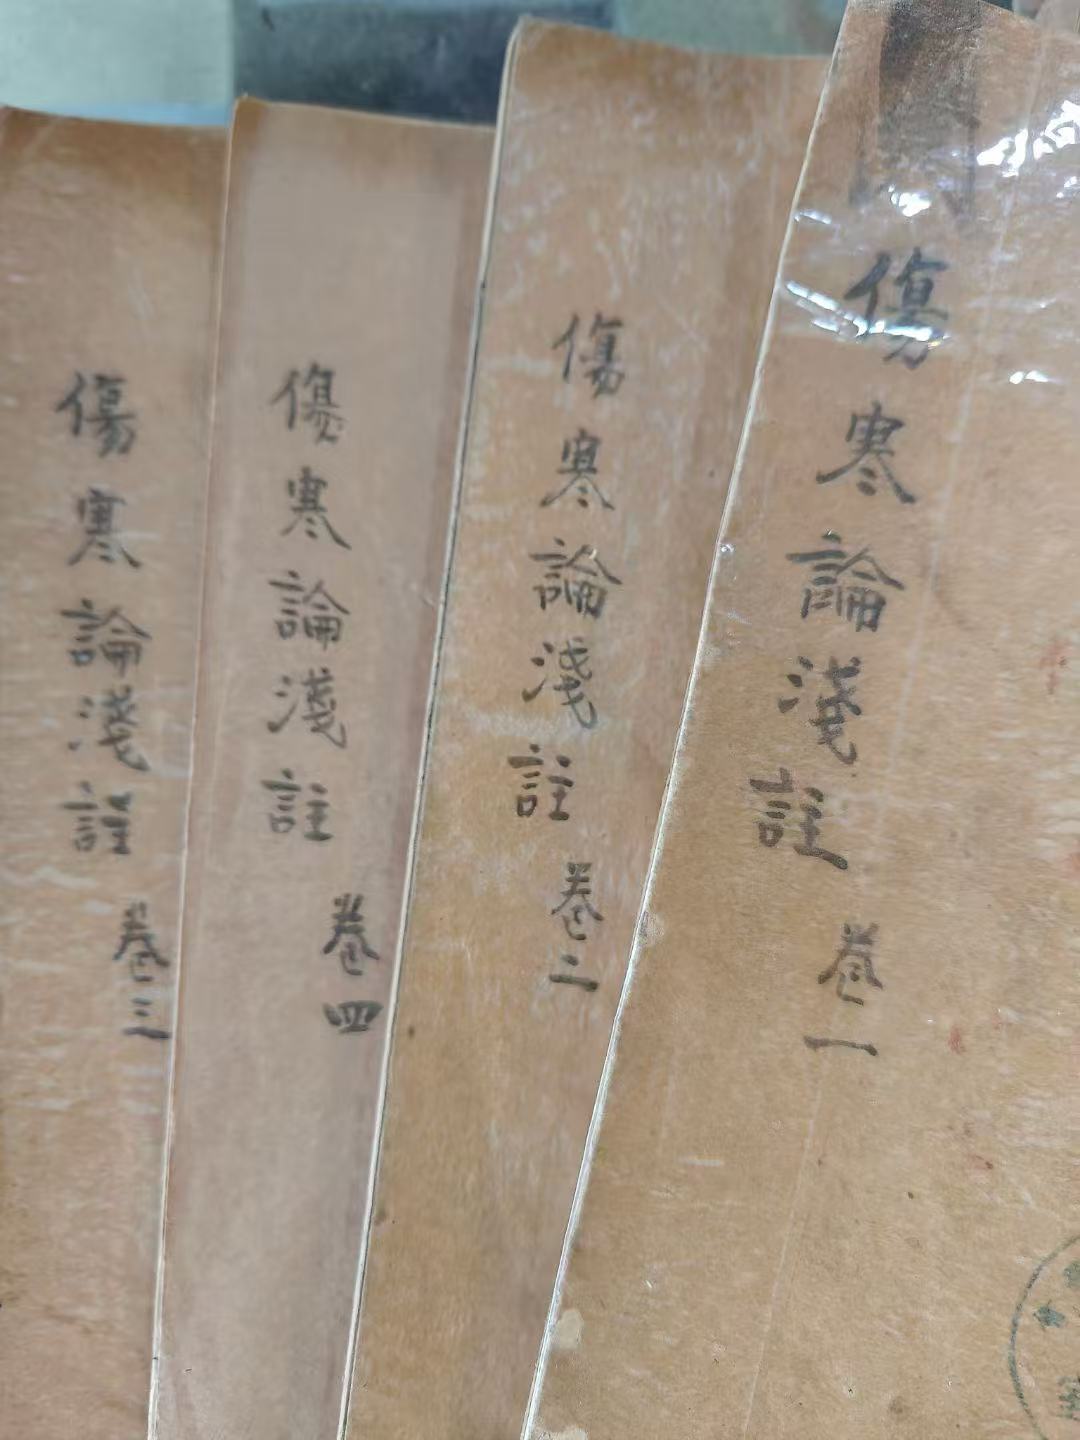 傷寒論淺註 卷一
傷寒論淺註 卷二
傷寒論淺註 卷四
傷寒論淺註 卷三